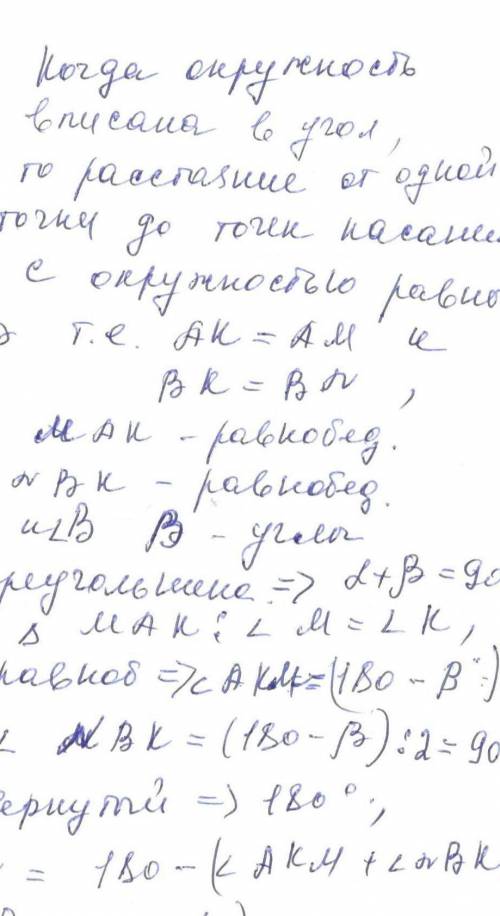 Когда окружность
вписана в угол,
то расстаяние от одной
точки до точек касани
с окружностью равны
т.е. АК = АМ и
ВК = ВN ,
МАК - равнобед.
NВК - равнобед.
и∠В β - углы
реугольника => α+β = 90
∆ МАК : ∠ М = ∠ К,
равноб => ∠ АКМ = (180 - β
NВК = (180 - β) : 2 = 90
вернутый => 180°,
= 180 - (∠ АКМ + ∠ NВК